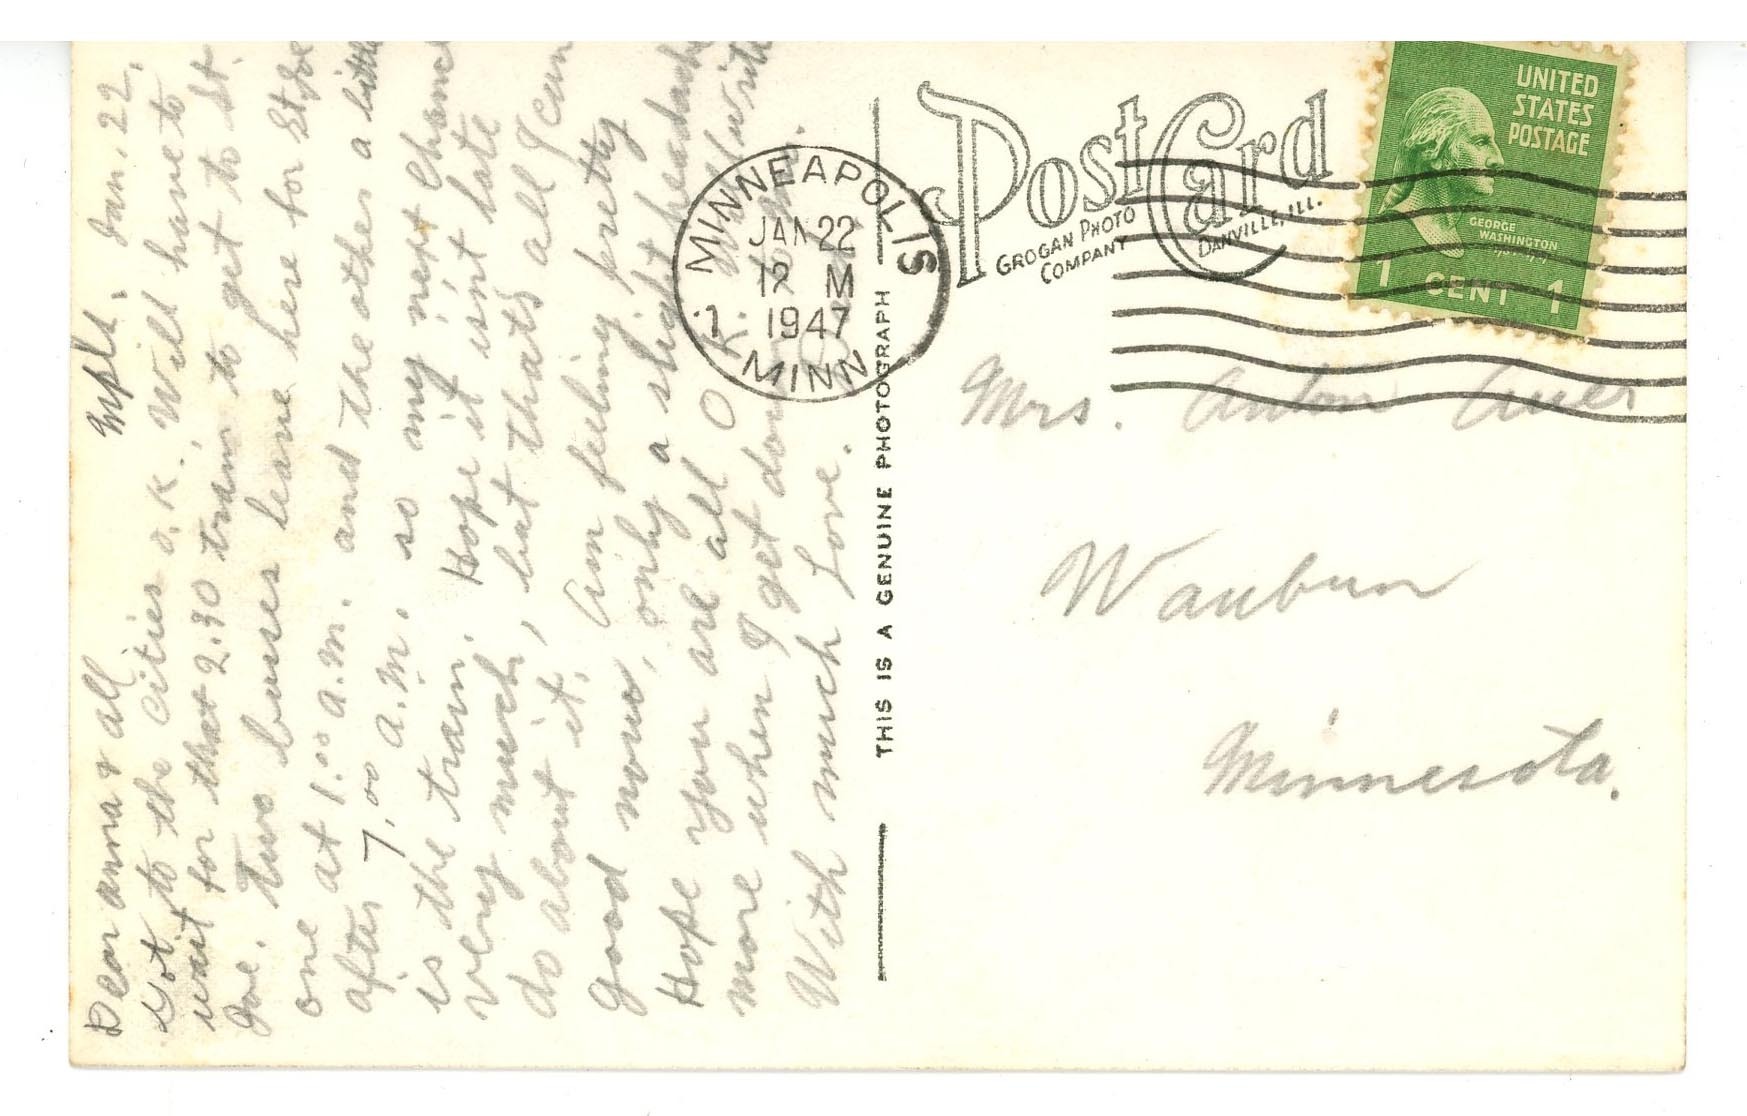 Mpls. Jan. 22.
Dear Anna & all
Got to the Cities o.K., Will have to
wait for that 2.30 train to get to St.
Joe. Two busses leave here for St Joe
one at 1.00 a.m. and the other a little
after 7.00 a.m. so my next chance
is the train. Hope it isn't late
very much, but thats all I can
do about it. Am feeling pretty
good now, only a slight headache
Hope you are all O K. Will write
more when I get down
With much Love.
THIS IS A GENUINE PHOTOGRAPH
Post Card
GROGAN PHOTO
COMPANY
DANVILLE, ILL.
MINNEAPOLIS
JAN 22
12 M
1947
1
MINN
UNITED
STATES
POSTAGE
GEORGE
WASHINGTON
1 CENT 1
Mrs. Anton Auer
Waubun
Minnesota.